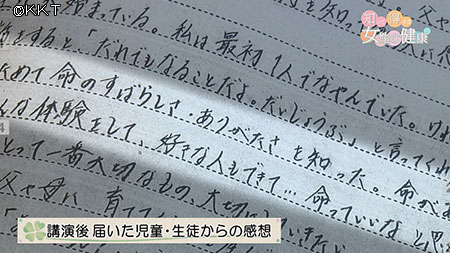 ©KKT
知って得する
女性の健康
始まっている。私は最初1人でなやんでいた。けれ
をすると、「だれでもなることだよ。だいじょうぶ」と言ってくれ
ためて命のすばらしさ・ありがたさを知った。命があ
んな体験をして、好きな人もできて…命っていいなと思
とって一番大切なもの、大切に
父や母に育て
講演後 届いた児童・生徒からの感想